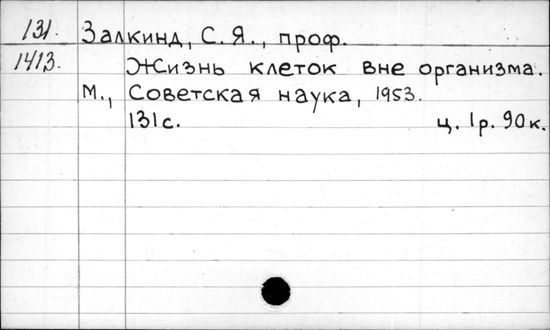 131. Залкинд, С. Я., проф.
1413. Жизнь клеток вне организма.
М., Советская наука, 1953.
131 с. ц. 1р. 90к.